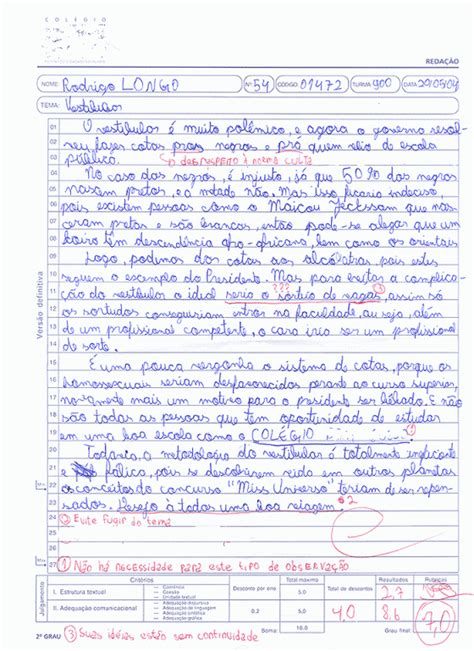 COLÉGIO
REDAÇÃO
NOME: Rodrigo LONGO Nº 54 CÓDIGO 01472 TURMA 900 DATA 29/05/04
TEMA: Vestibular
01 O vestibular é muito polêmico, e agora o governo resol-
02 veu fazer cotas pros negros e pró quem veio de escola
03 pública. DESRESPEITO À NORMA CULTA
04 No caso dos negros, é injusto, já que 50% dos negros
05 nasam pretos, e a metade não. Mas isso ficaria indeciso,
06 pois existem pessoas como o Maicou Jeckssam que nas-
07 ceram pretas e são brancas, então pode-se alegar que um
08 loiro tem descendência afro-africana, bem como os orientais
09 Logo, podimos dar cotas aos alcólatras, pois estes
10 seguem o exemplo do Presidente. Mas para evitar a complica-
11 ção do vestibular o ideal seria o sorteio de vagas, assim só
??? 3
12 os sortudos conseguiriam entrar na faculdade, ou seja, além
13 de um profissional competente, o cara iria ser um profissional
14 de sorte.
15 É uma pouca vergonha o sistema de cotas, porque os
16 homossexuais seriam desfavorecidos perante ao curso superior,
17 novamente mais um motivo para o presidente ser
18 são todas as pessoas que tem oportunidade de estudar
19 em uma boa escola como o COLÉGIO
20 Todavia, a metodologia do vestibular é totalmente
21 e pois se descobrirem vida em outros planetas
22 os conceitos do concurso "Miss Universo" teriam de ser repen-
23 sados. Desejo à todos uma boa viagem. 2
24 2 Evite fugir do tema
25
26
27 1 Não há necessidade para este tipo de observação
Versão definitiva
Julgamento
Critérios Desconto por erro Total máximo Total de descontos Resultados
I. Estrutura textual 5.0 2,7
II. Adequação comunicacional 0.2 5.0 4,0 8,6
Soma: 10.0 Grau final: 7,0
2º GRAU 3 Suas idéias estão sem continuidade